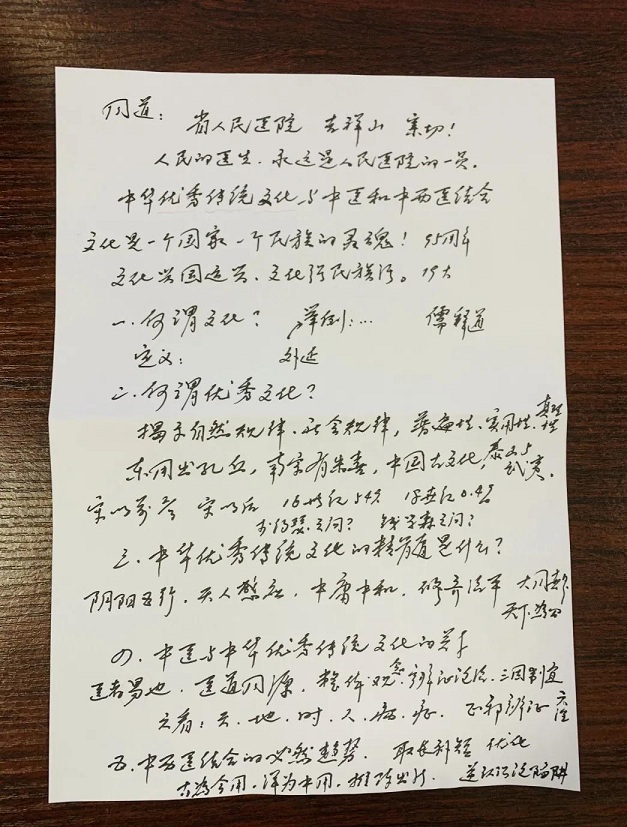 同道： 省人民医院 吉祥山 亲切！
人民的医生．永远是人民医院的一员．
中华优秀传统文化与中医和中西医结合
文化是一个国家一个民族的灵魂！ 95周年
文化兴国运兴、文化强民族强。19大
一．何谓文化？ 举例：… 儒释道
定义： 外延
二．何谓优秀文化？
揭示自然规律．社会规律，普遍性．实用性．真理性
东周出孔丘，南宋有朱熹，中国古文化，泰山与武夷．
宋以前 宋以后 16世纪54% 19世纪0.4%
李约瑟之问？ 钱学森之问？
三．中华优秀传统文化的精髓是什么？
阴阳五行．天人整应．中庸中和．修齐治平 大同
天下为公
四．中医与中华优秀传统文化的关系
医者易也．医道同源．整体观念．辨证论治．三因制宜
六看：天．地．时．人．病．症． 正邪辨证
五．中西医结合的必然趋势． 取长补短 优化
古为今用．洋为中用．推陈出新． 陷阱